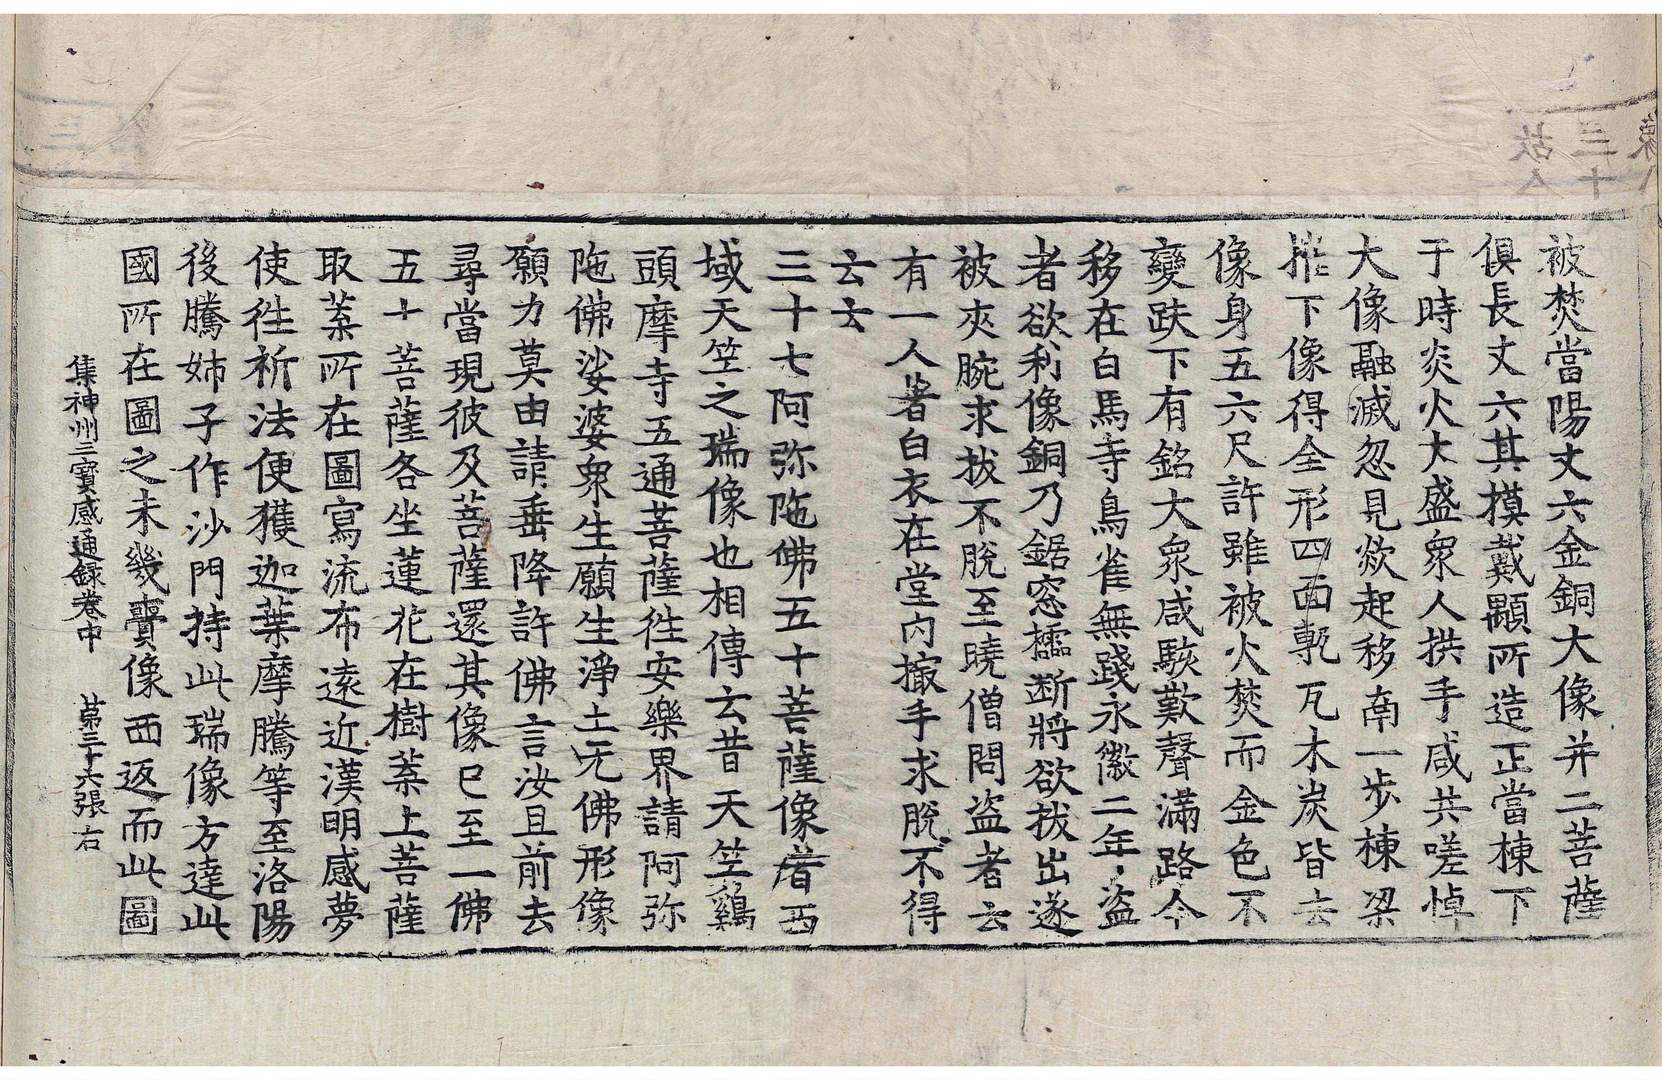 被焚當陽丈六金銅大像并二菩薩
俱長丈六其摸戴顒所造正當棟下
于時炎火大盛衆人拱手咸共嗟悼
大像融滅忽見欻起移南一步棟梁
摧下像得全形四面甎瓦木炭皆去
像身五六尺許雖被火焚而金色不
變趺下有銘大衆咸駭歎聲滿路今
移在白馬寺鳥雀無踐永徽二年盜
者欲利像銅乃鋸窓櫺断將欲拔出遂
被夾腕求拔不脫至曉僧問盜者云
有一人著白衣在堂內撮手求脫不得
云云
三十七阿弥陁佛五十菩薩像者西
域天竺之瑞像也相傳云昔天竺鷄
頭摩寺五通菩薩往安樂界請阿弥
陁佛娑婆衆生願生淨土无佛形像
願力莫由請垂降許佛言汝且前去
尋當現彼及菩薩還其像已至一佛
五十菩薩各坐蓮花在樹葉上菩薩
取葉所在圖寫流布遠近漢明感夢
使往祈法便獲迦葉摩騰等至洛陽
後騰姊子作沙門持此瑞像方達此
國所在圖之未幾賷像西返而此圖
集神州三寶感通録卷中 第三十六張 右